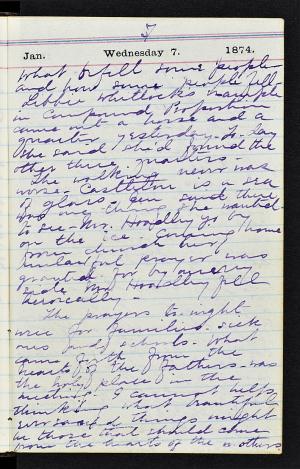 5
Jan. Wednesday 7. 1874.
What befell some people
and how some people fell
Libbie Whitlocks example
in Compound Proportion
came out a horse and a
quarter yesterday. To-day
she said she'd found the
other three quarters.
The walking never was
worse. Castleton is a sea
of glass. said there
was one thing she wanted
to see - Mr. Hoadley go by
on the ice. Coming home
from church her
unlawful prayer was
granted. for by our very
side Mr Hoadley fell
heroically.
The prayers to-night
were for families. sick
ones and schools. What
came forth from the
hearts of the fathers was
the holy place in the
meeting. I cannot help
thinking what beautiful
things might
be those that should come
from the hearts of the mothers